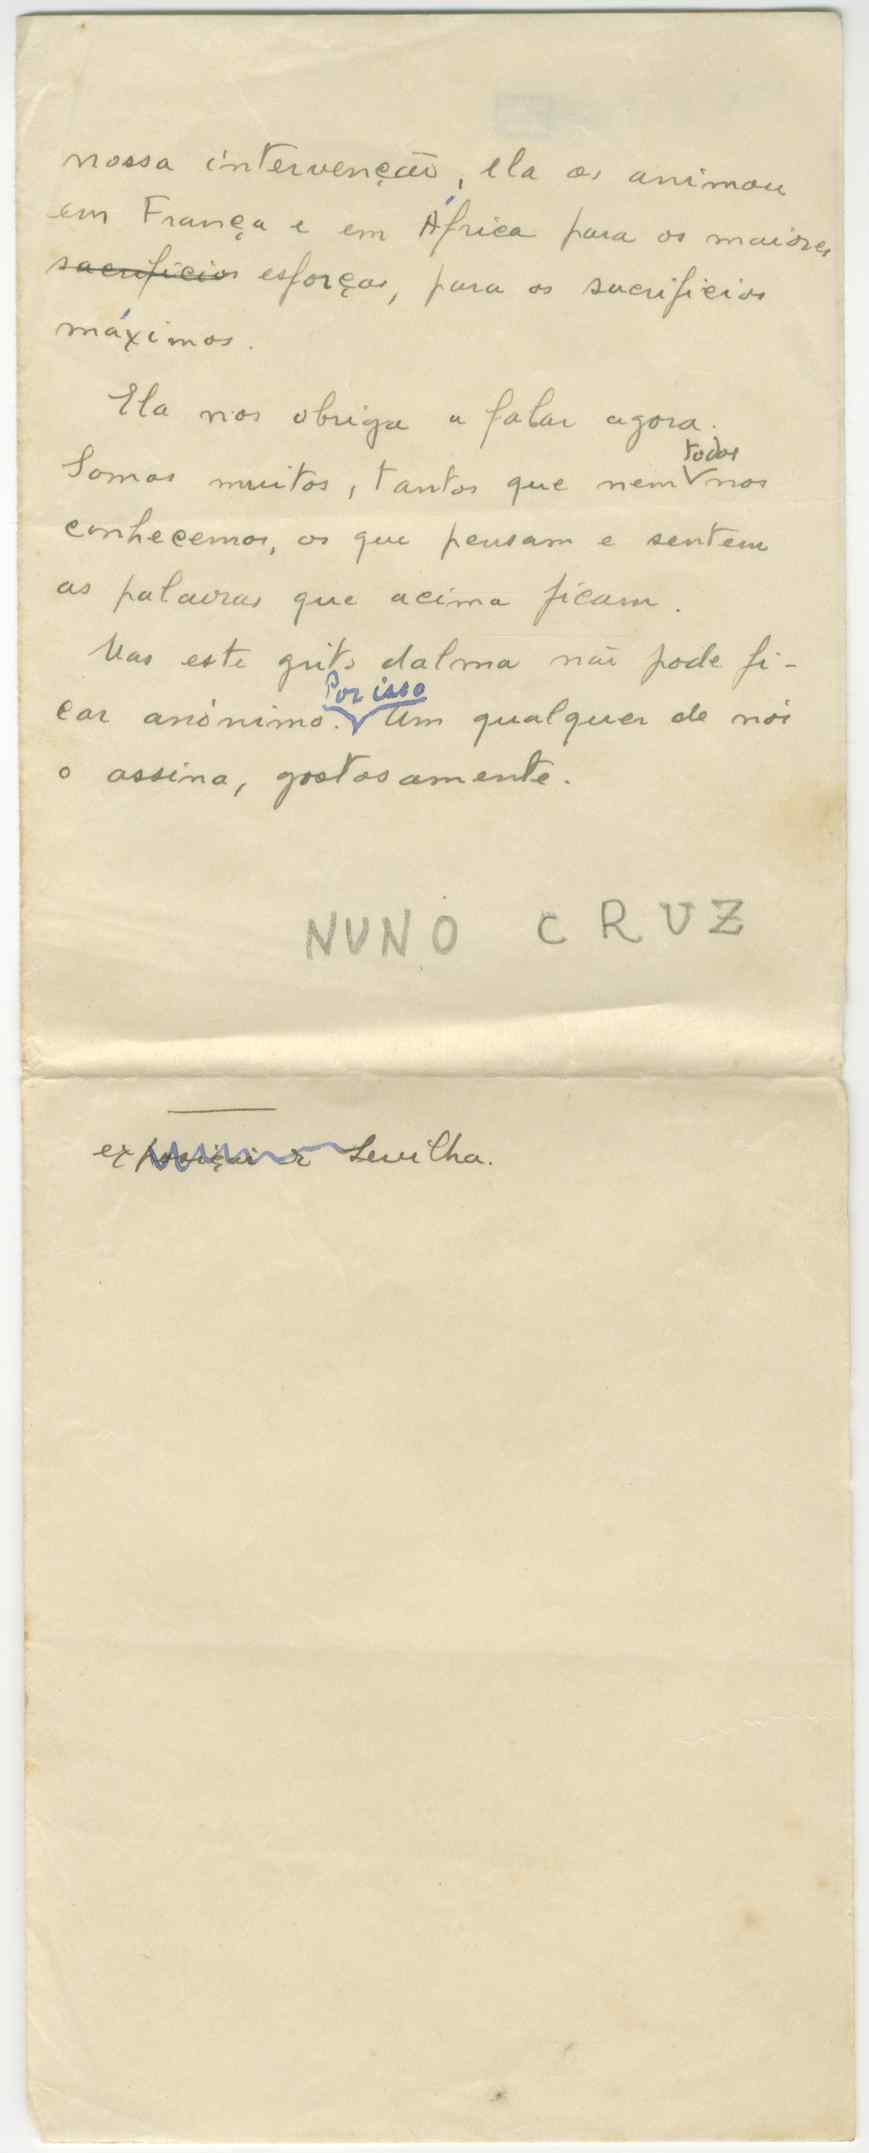 nossa intervenção, ela os animou
em França e em África para os maiores
sacrificios esforços, para os sacrificios
máximos.
Ela nos obriga a falar agora.
todos
Somos muitos, tantos que nem nos
conhecemos, os que pensam e sentem
as palavras que acima ficam.
Mas este grito dalma não pode fi-
Por isso
car anónimo. Um qualquer de nós
o assina, gostosamente.
NUNO CRUZ
exposição Sevilha.